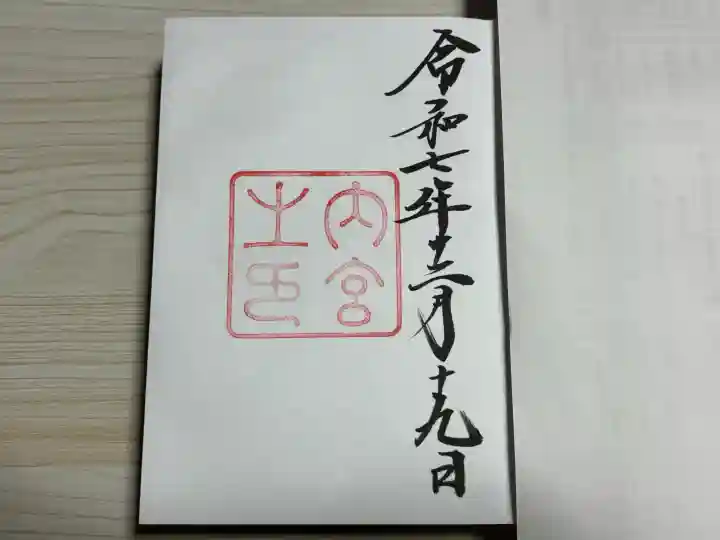 令和七年十二月十九日
内宮
之印